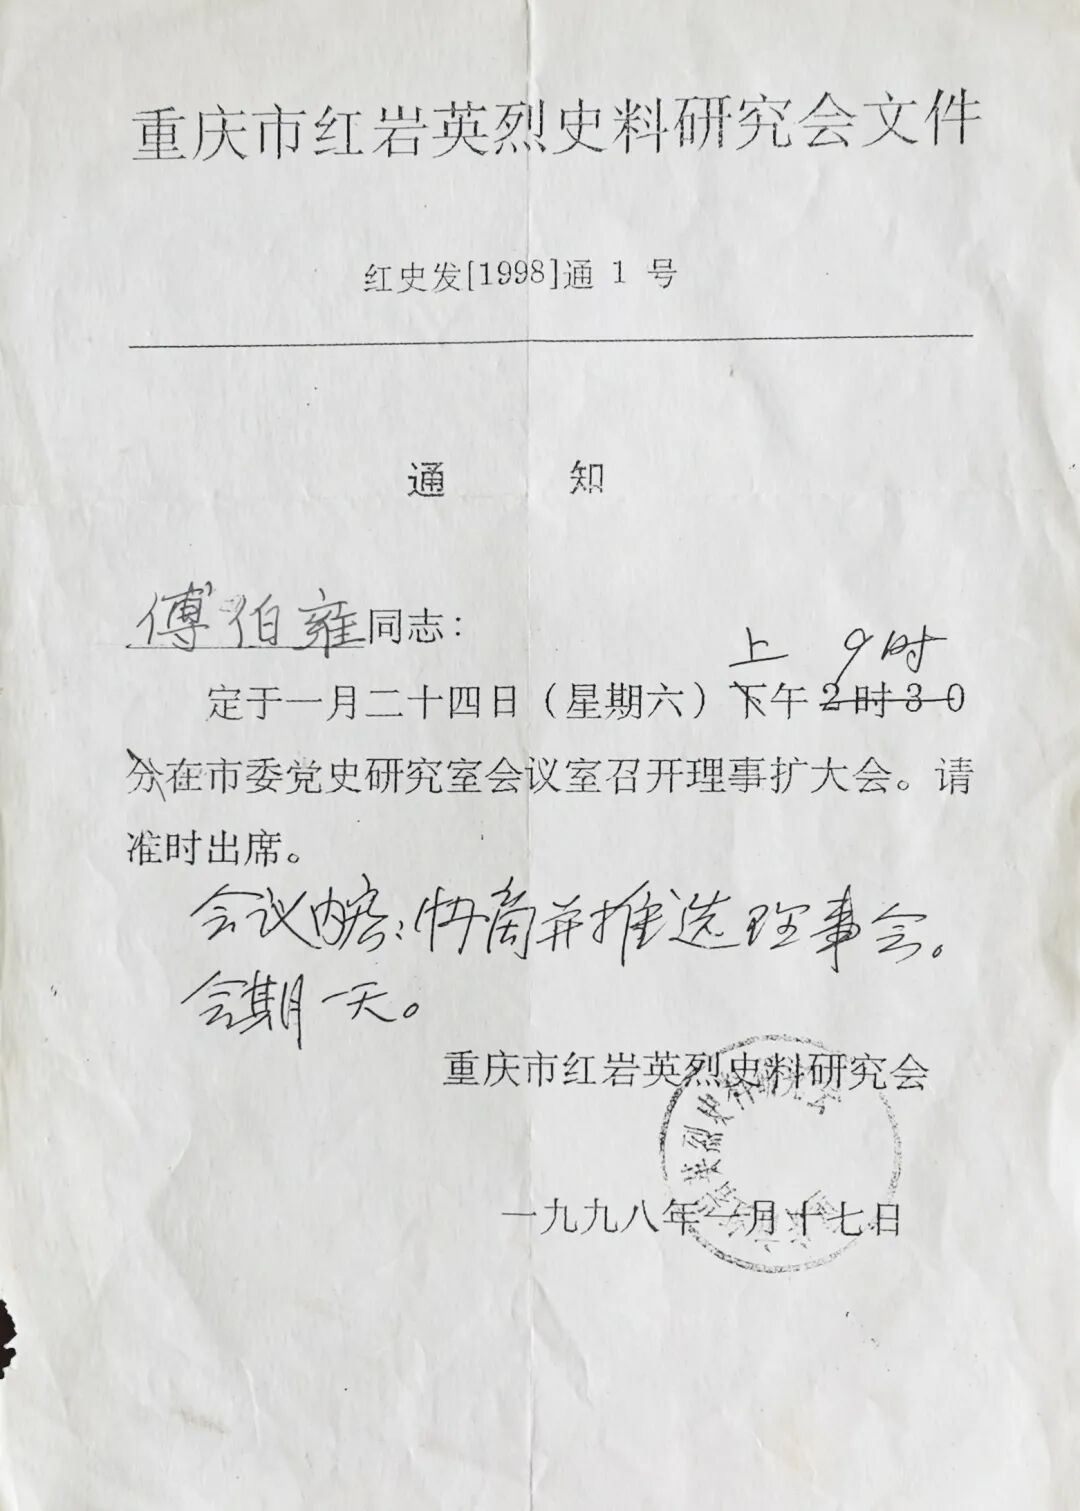 重庆市红岩英烈史料研究会文件
红史发[1998]通 1 号
通 知
傅伯雍同志：
上 9时
定于一月二十四日（星期六）下午2时30
分在市委党史研究室会议室召开理事扩大会。请
准时出席。
会议内容：协商并推选理事会。
会期一天。
重庆市红岩英烈史料研究会
一九九八年一月十七日
英烈史料研究会